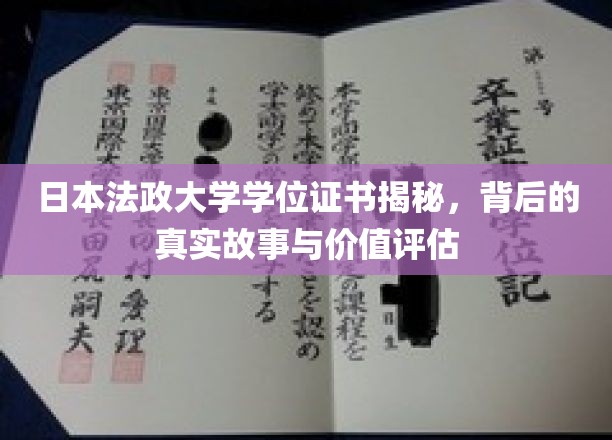 日本法政大学学位证书揭秘，背后的
真实故事与价值评估
第 号
卒業証 位記
本学商学部 定の課程を
修めて本学 とを認め
学士(商学)の する
平成
東京国際大学商
東京国際大学